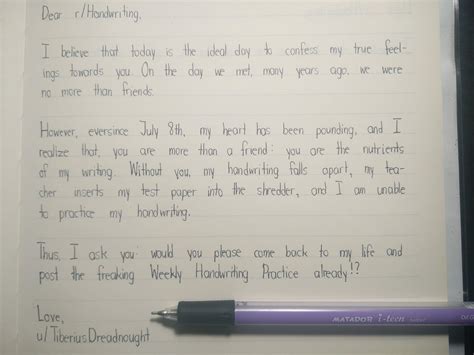 Dear r/Handwriting,
I believe that today is the ideal day to confess my true feel-
ings towards you. On the day we met, many years ago, we were
no more than friends.
However, eversince July 8th, my heart has been pounding, and I
realize that, you are more than a friend: you are the nutrients
of my writing. Without you, my handwriting falls apart, my tea-
cher inserts my test paper into the shredder, and I am unable
to practice my handwriting.
Thus, I ask you: would you please come back to my life and
post the freaking Weekly Handwriting Practice already!?
Love,
u/TiberiusDreadnought
MATADOR i-teen